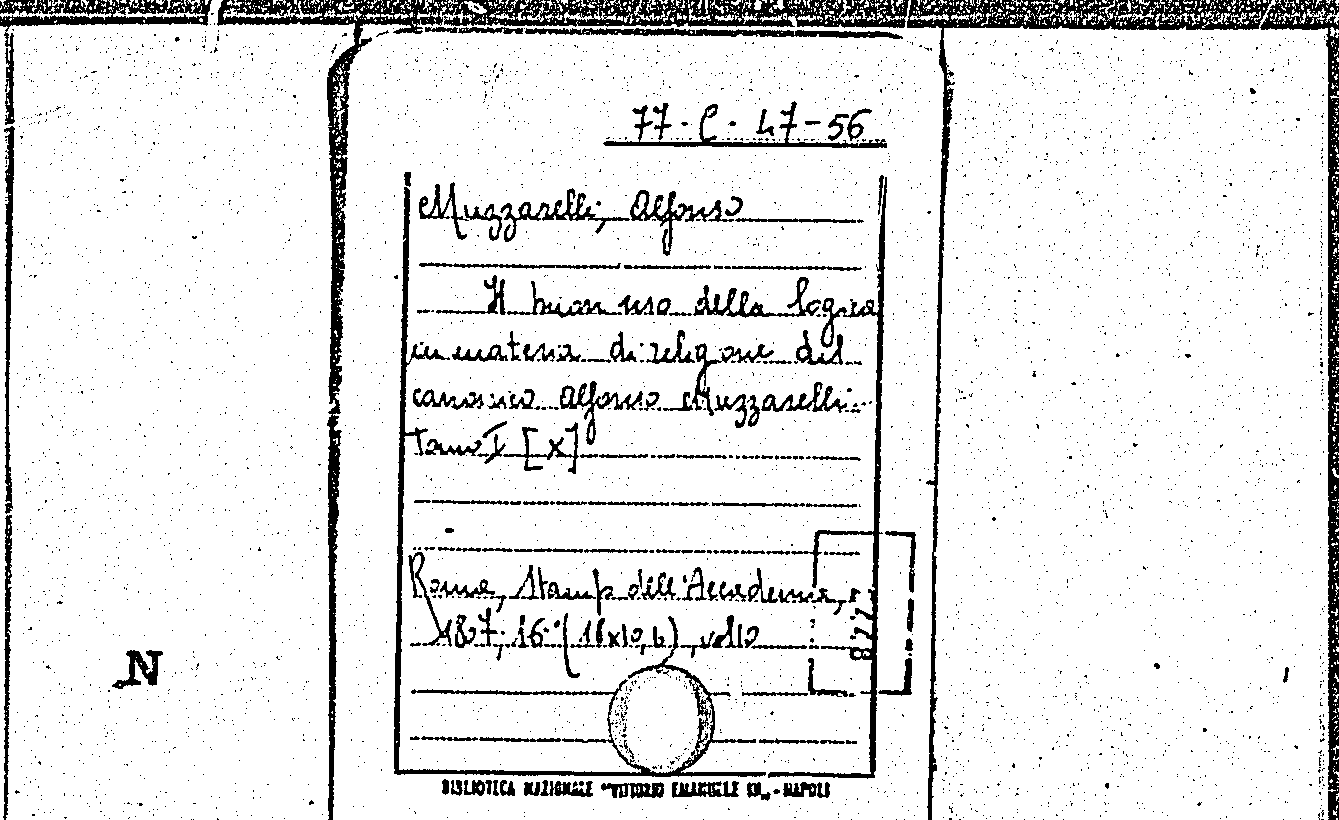 77-C-47-56
Muzzarelli, Alfonso
Il buon uso della logica
in materia di religione del
canonico Alfonso Muzzarelli..
Tomo I [X]
Roma, Stamp dell'Accademia,
1807, 16° (18x10,6), vol10
877
N
BIBLIOTECA NAZIONALE "VITTORIO EMANUELE III" - NAPOLI